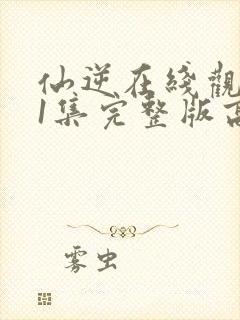 仙逆在线觀
1集完整版高
雾虫